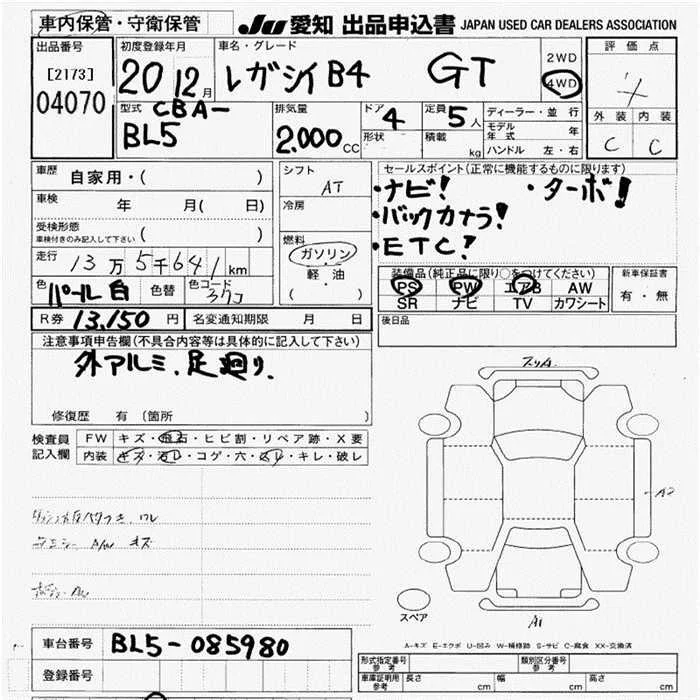 車内保管・守衛保管
JU 愛知 出品申込書 JAPAN USED CAR DEALERS ASSOCIATION
出品番号
[2173]
04070
初度登録年月
20 12月
車名・グレード
レガシィB4 GT
2WD
4WD
評価点
外装 内装
C C
型式 CBA-
BL5
排気量
2.000cc
ドア 4
形状
定員 5人
積載 kg
ディーラー・並行
モデル年式 年
ハンドル 左・右
車歴 自家用・( )
車検 年 月( 日)
受検形態
車検付きのみ記入して下さい ( )
走行 13万5千641km
色 パール白 色替 色コード
R券 13.150円 名変通知期限 月 日
シフト
AT
冷房
燃料
ガソリン
軽・油
( )
セールスポイント(正常に機能するものに限ります)
・ナビ! ・ターボ!
・バックカメラ!
・ETC!
装備品(純正品に限り○をつけてください)
PS PW エアB AW
SR ナビ TV カワシート
新車保証書
有・無
後日品
注意事項申告欄(不具合内容等は具体的に記入して下さい)
外アルミ、足廻り、
修復歴 有 (箇所 )
検査員記入欄
FW キズ・飛石・ヒビ割・リペア跡・X要
内装 キズ・汚レ・コゲ・穴・スレ・キレ・破レ
A2
A1
スペア
A-キズ E-エクボ U-凹み W-補修跡 S-サビ C-腐食 XX-交換済
車台番号 BL5-085980
登録番号
形式指定番号 参考
類別区分番号 参考
車庫証明用 参考 長さ cm 幅 cm 高さ cm